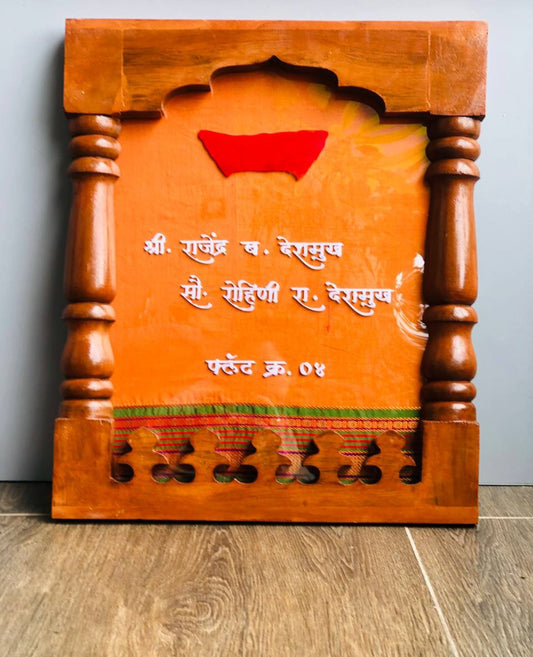 श्री. राजेंद्र ब. देशमुख
सौ. रोहिणी रा. देशमुख
फ्लॅट क्र. ०४